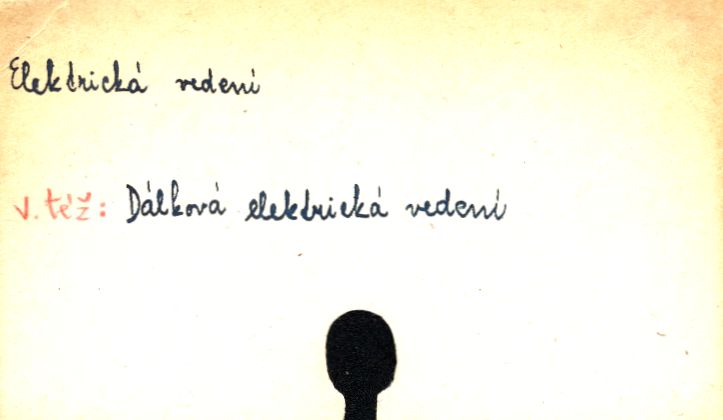 Elektrická vedení
v. též: Dálková elektrická vedení